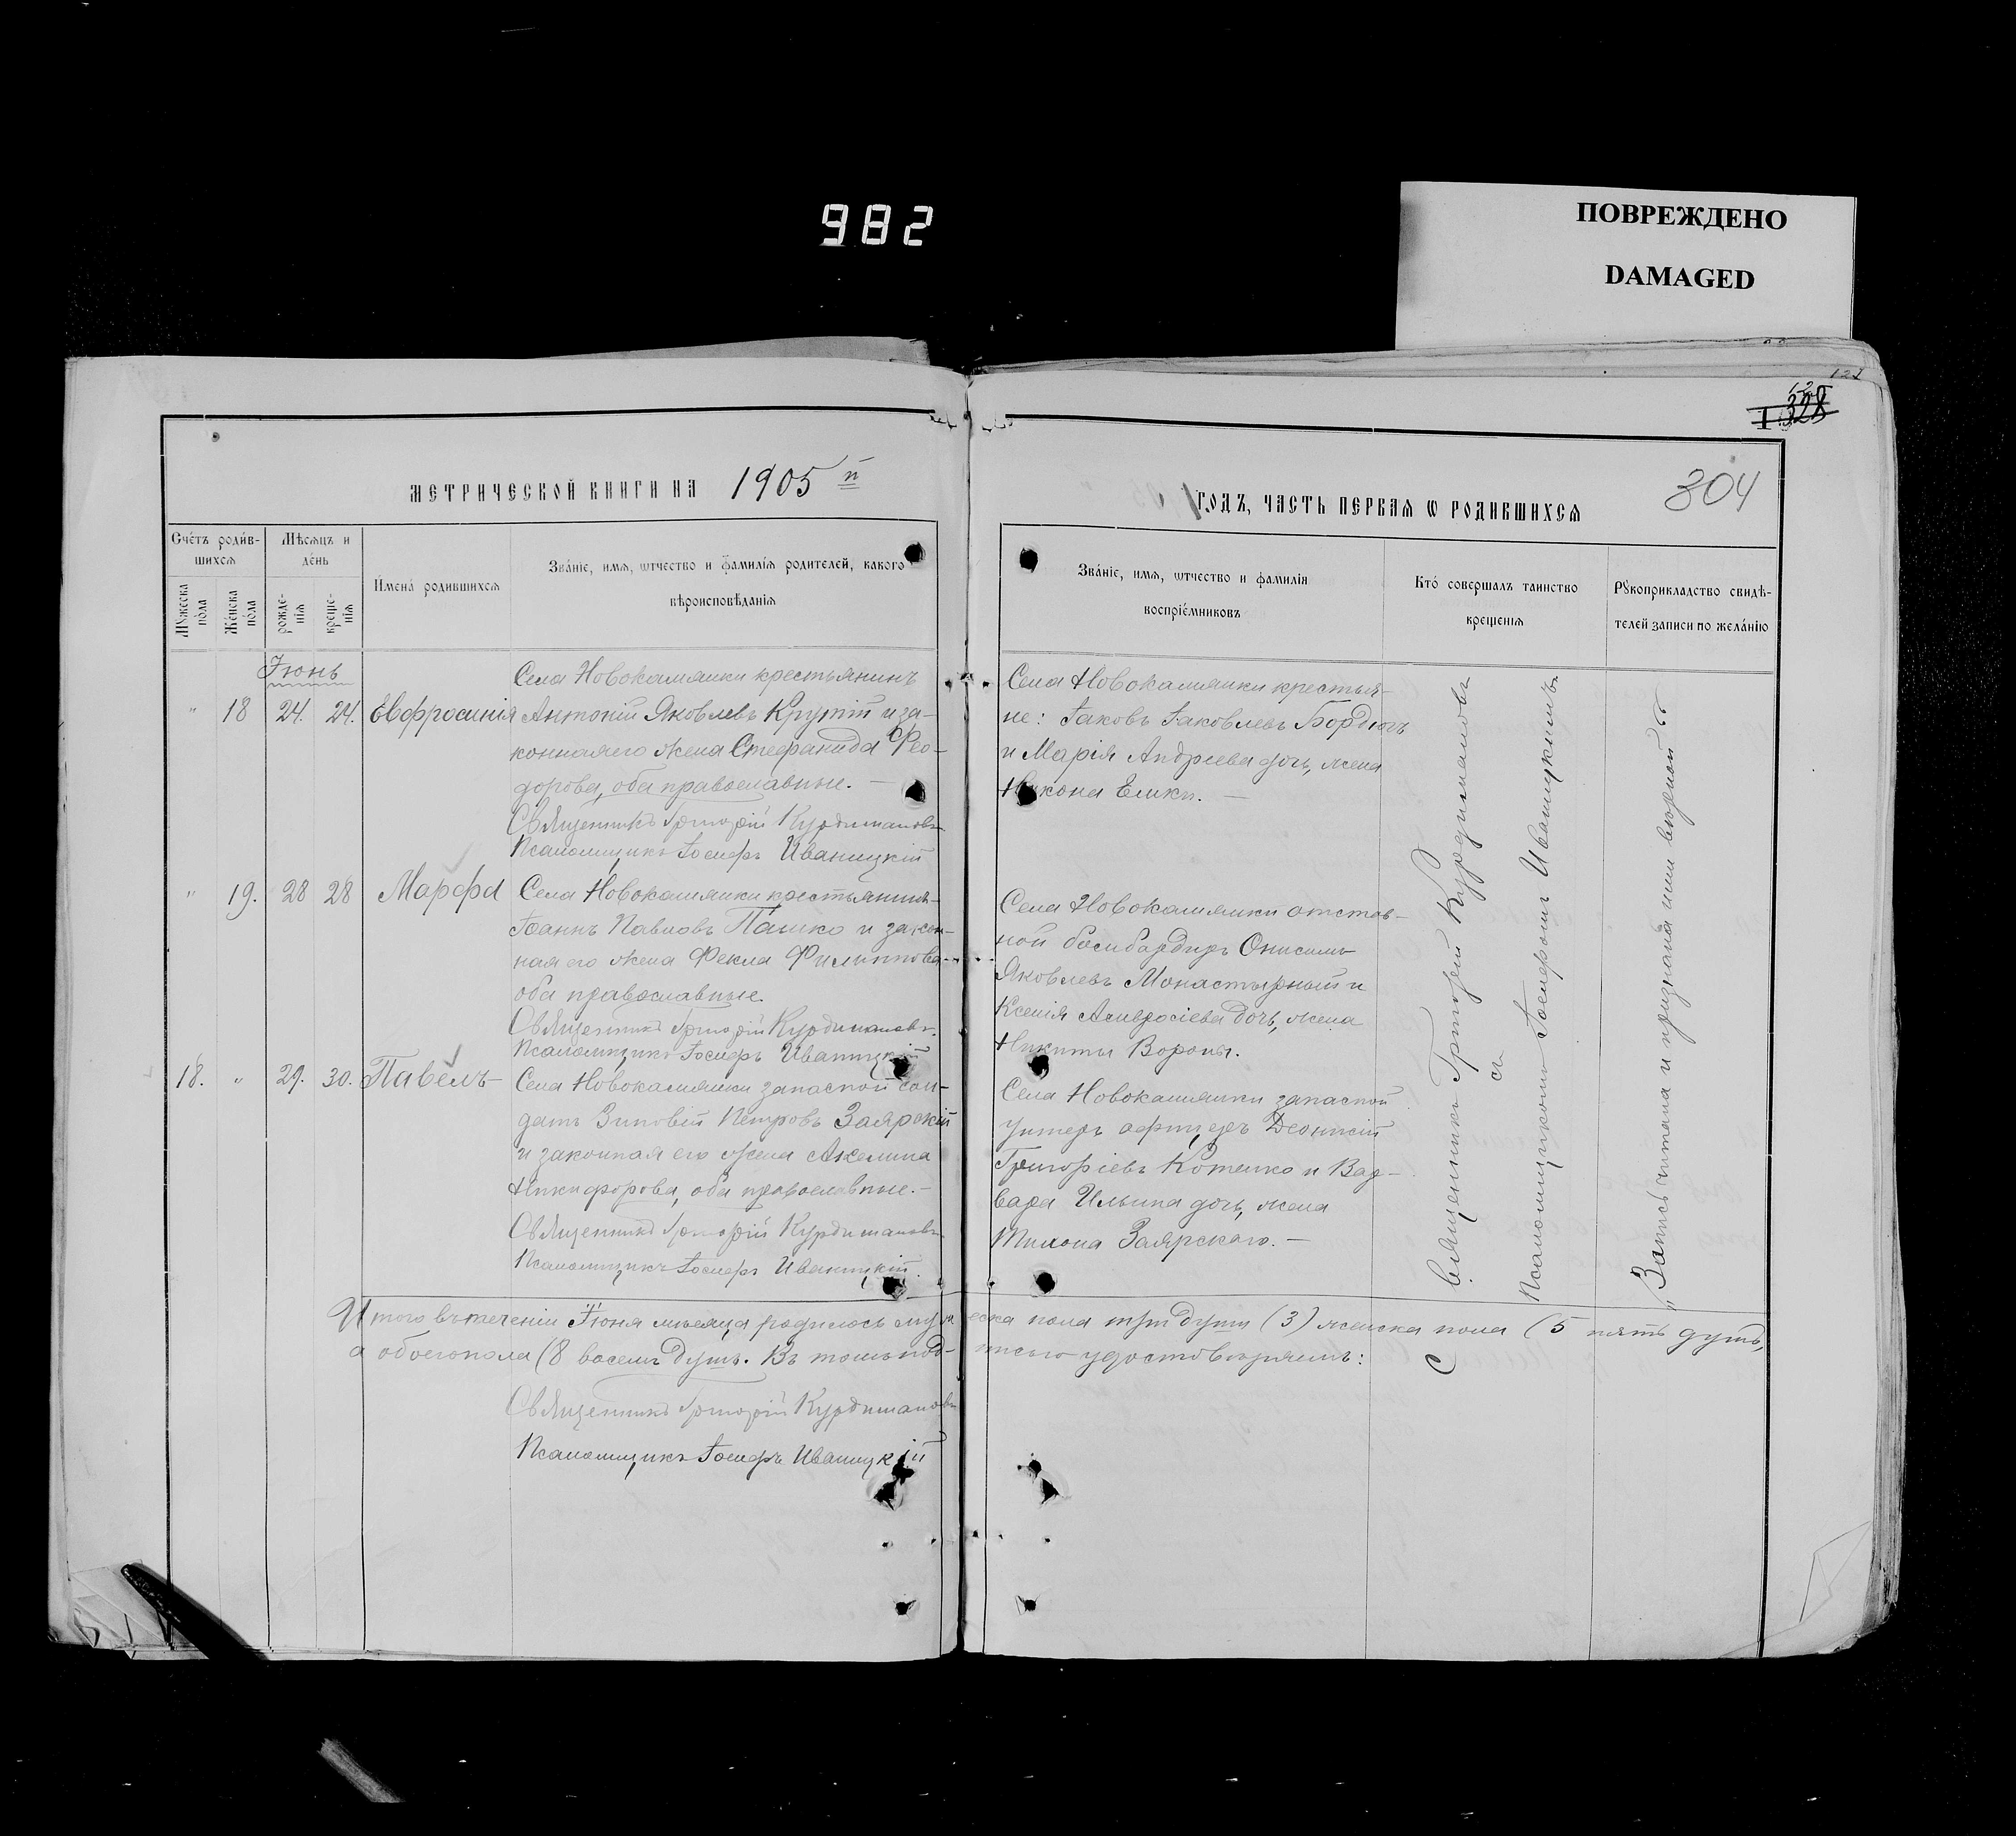 982
ПОВРЕЖДЕНО
DAMAGED
304
МЕТРИЧЕСКОЙ КНИГИ НА 1905 й
ГОДЪ, ЧАСТЬ ПЕРВАЯ Ѡ РОДИВШИХСЯ
Счётъ роди́в-
шихся
Мѣсяцъ и
де́нь
Мꙋжеска по́ла
Же́нска по́ла
рожде-
нія
креще-
нія
Имена́ родившихся
Зва́ніе, имя, ѿтчество и фамилія родителей, какого
вѣроисповѣданія
Зва́ніе, имя, ѿтчество и фамилія
воспріе́мниковъ
Кто́ совершалъ таинство
крещенія
Рꙋкоприкладство свидѣ-
телей записи по жела́нію
Іюнь
" 18 24. 24. Евфросинія
Села Новокамянки крестьянинъ
Антоній Яковлевъ Крутій и за-
конная его жена Стефанида Ѳео-
дорова, оба православные. —
Священникъ Григорій Курдимановъ
Псаломщикъ Іосифъ Иваницкій
Села Новокамянки крестья-
не: Іаковъ Іаковлевъ Бордюгъ
и Марія Андреева дочь, жена
Никона Емки. —
" 19. 28 28 Марфа
Села Новокамянки крестьянинъ
Іоаннъ Павловъ Пашко и закон-
ная его жена Фекла Филиппова
оба православные.
Священникъ Григорій Курдимановъ.
Псаломщикъ Іосифъ Иваницкій
Села Новокамянки отстав-
ной бомбардиръ Онисимъ
Яковлевъ Монастырный и
Ксенія Амвросіева дочь, жена
Никиты Вороны.
18. " 29. 30. Павелъ
Села Новокамянки запасной сол-
датъ Зиновій Петровъ Заярскій
и законная его жена Акелина
Никифорова, оба православные. —
Священникъ Григорій Курдимановъ
Псаломщикъ Іосифъ Иваницкій.
Села Новокамянки запасной
унтеръ офицеръ Деонисій
Григоріевъ Котенко и Вар-
вара Ильина дочь, жена
Тихона Заярскаго. —
Священникъ Григорій Курдимановъ
съ
Псаломщикомъ Іосифомъ Иваницкимъ.
„Запись читана и признана нами вѣрной"
Итого въ теченіи Іюня мѣсяца родилось мужеска пола три души (3) женска пола (5 пять душъ,
а обоего пола (8 восемь душъ. Въ томъ под- писью удостовѣряемъ:
Священникъ Григорій Курдимановъ
Псаломщикъ Іосифъ Иваницкій